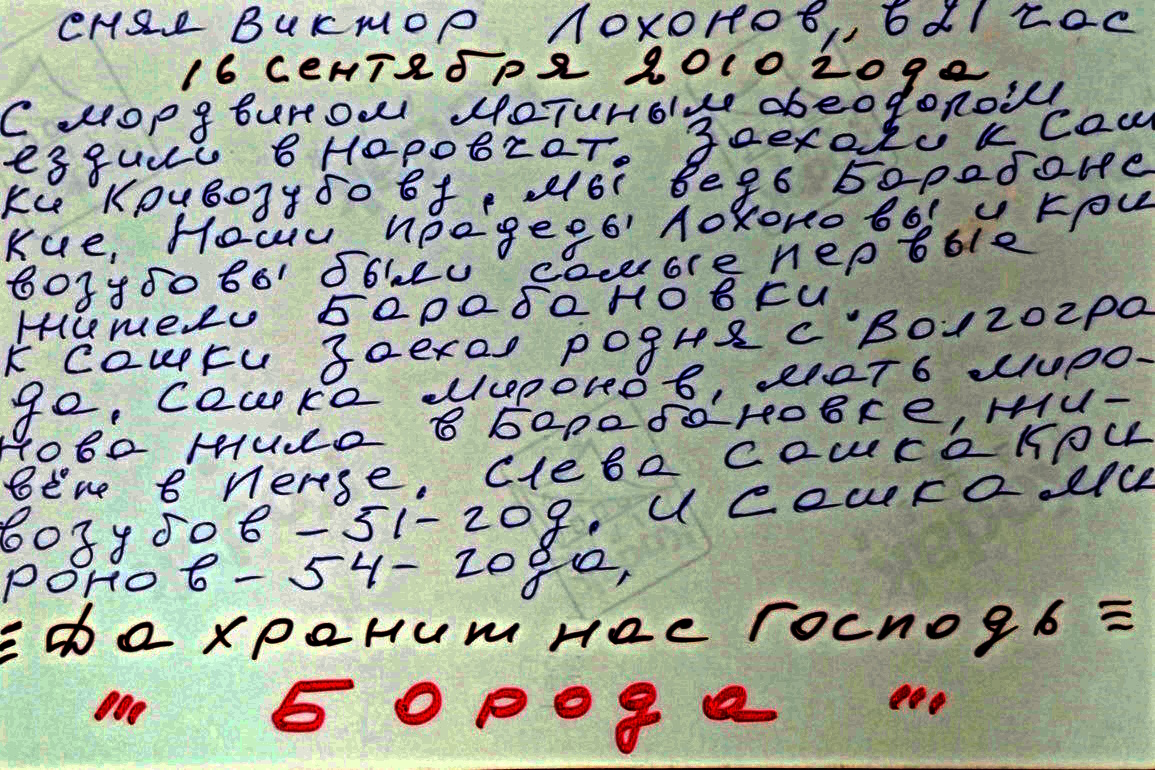 снял Виктор Лохонов,, в 21 час
16 сентября 2010 года
С мордвином Мотиным Феодором
ездили в Наровчат. Заехали к Саш
ки Кривозубову, мы ведь Барабанс
кие. Наши прадеды Лохоновы и кри
возубовы были самые первые
жители Барабановки
к Сашки заехал родня с Волгогра
да, Сашка Миронов, мать Миро-
нова жила в Барабановке, жи-
вёт в Пензе. Слева Сашка Кри
возубов - 51- год. и Сашка Ми
ронов - 54- года,
≡ Да хранит нас Господь ≡
„, Борода „,